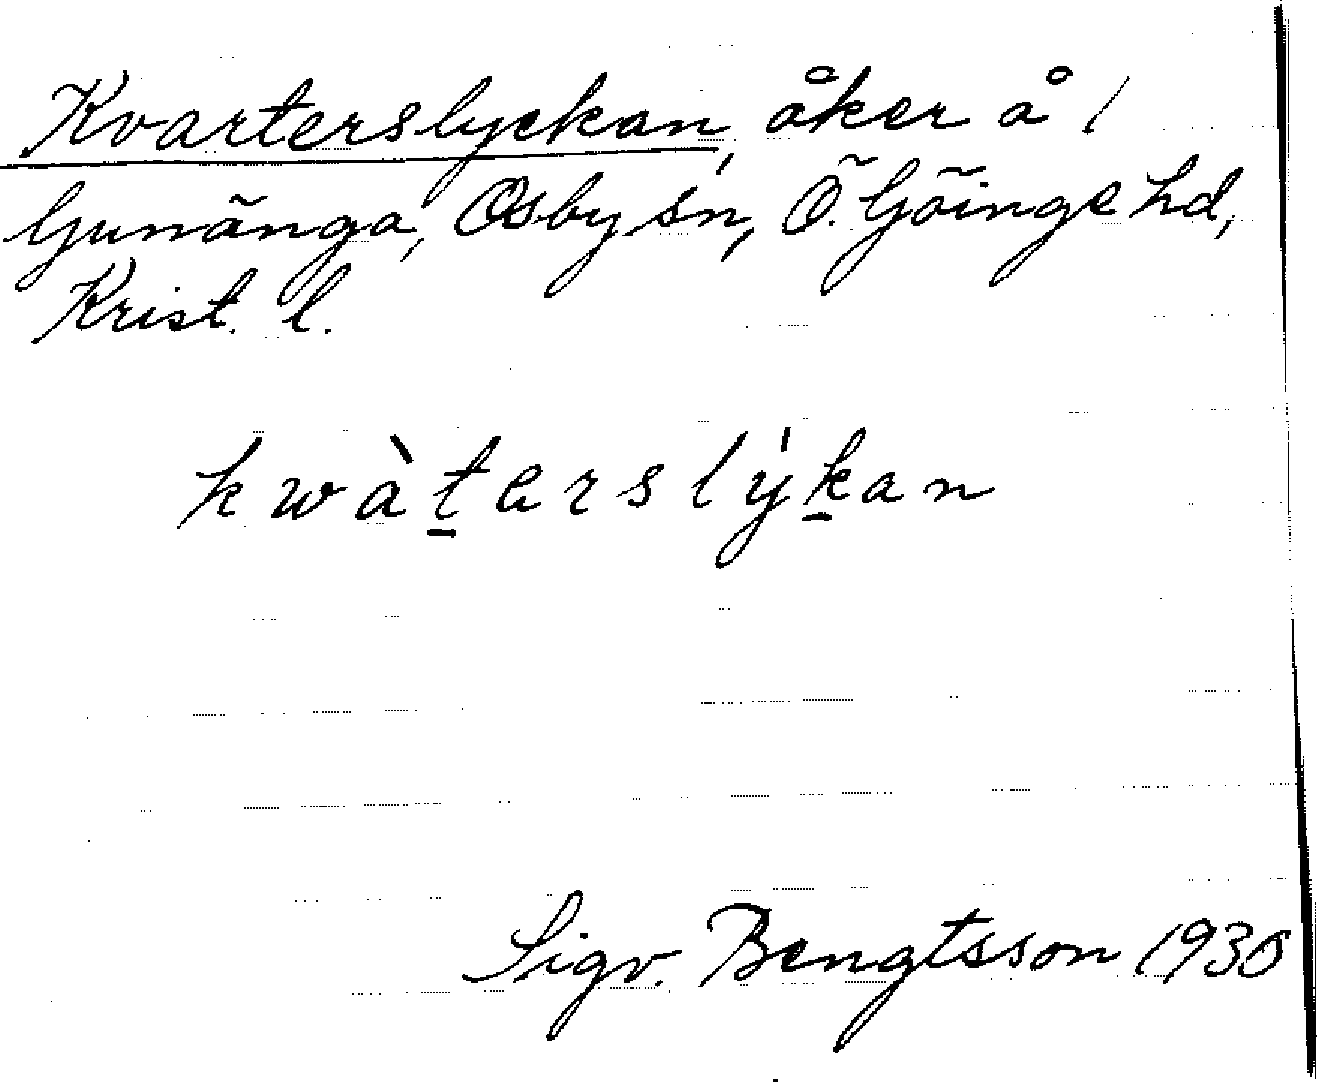 Kvarterslyckan, åker å 1
Gunänga, Osby sn, Ö. Göinge hd,
Krist. l.
kwàt̲erslýk̲an
Sigv. Bengtsson 1930